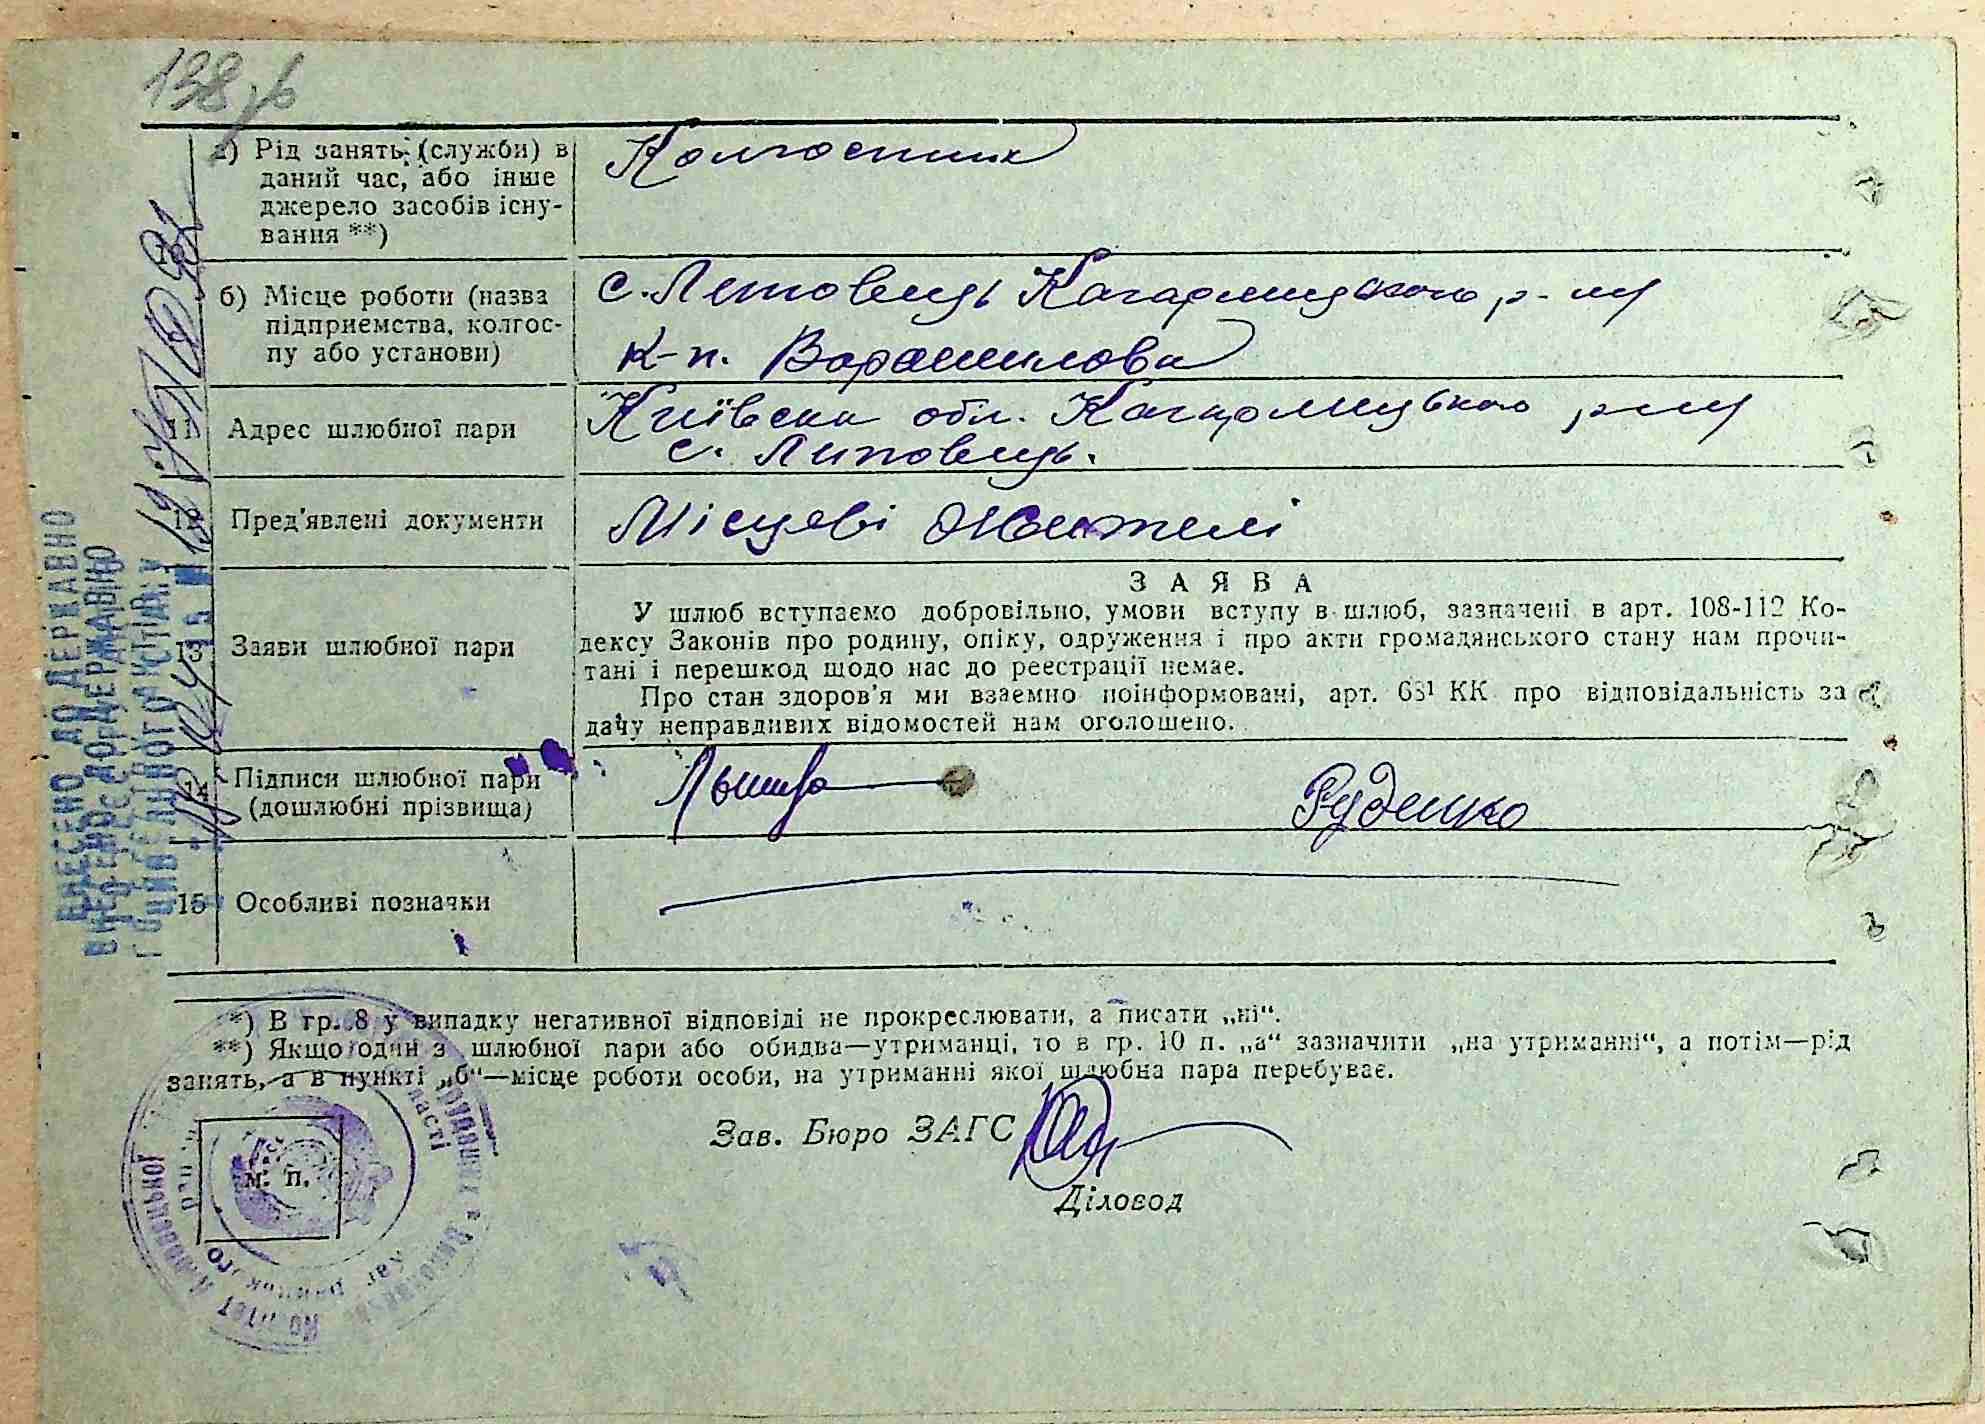 138 зв
а) Рід занять (служби) в
даний час, або інше
джерело засобів існу-
вання **)
Колгоспник
б) Місце роботи (назва
підприємства, колгос-
пу або установи)
с. Липовець Кагарлицького р-ну
к-п. Ворошилова
11
Адрес шлюбної пари
Київська обл. Кагарлицького р-ну
с. Липовець.
12
Пред'явлені документи
Місцеві жителі
13
Заяви шлюбної пари
ЗАЯВА
У шлюб вступаємо добровільно, умови вступу в шлюб, зазначені в арт. 108-112 Ко-
дексу Законів про родину, опіку, одруження і про акти громадянського стану нам прочи-
тані і перешкод щодо нас до реєстрації немає.
Про стан здоров'я ми взаємно поінформовані, арт. 68¹ КК про відповідальність за
дачу неправдивих відомостей нам оголошено.
14
Підписи шлюбної пари
(дошлюбні прізвища)
Руденко
15
Особливі позначки
*) В гр. 8 у випадку негативної відповіді не прокреслювати, а писати „ні“.
**) Якщо один з шлюбної пари або обидва—утриманці, то в гр. 10 п. „а“ зазначити „на утриманні“, а потім—рід
занять, а в пункті „б“—місце роботи особи, на утриманні якої шлюбна пара перебуває.
Зав. Бюро ЗАГС
Діловод
м. п.
ВНЕСЕНО ДО ДЕРЖАВНО